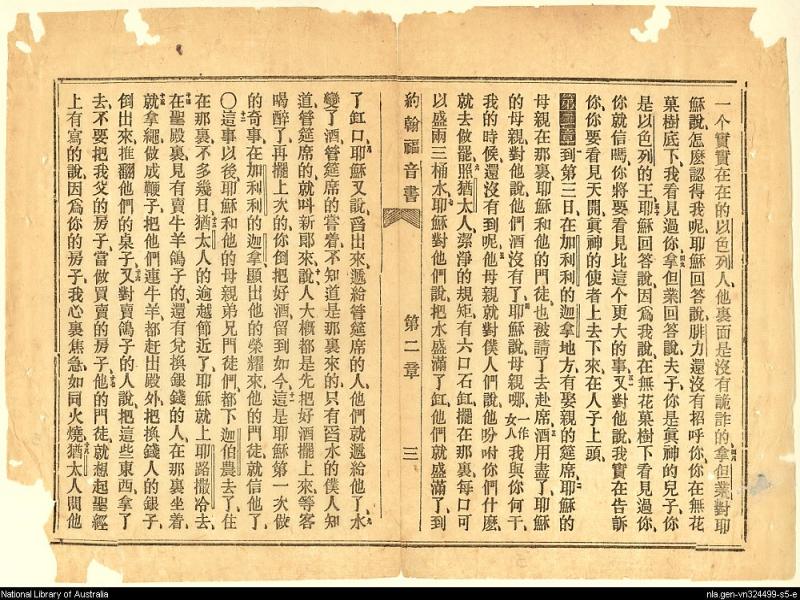 一个實實在在的以色列人、他裏面是沒有詭詐的、拿但業對耶
穌說、怎麽認得我呢、耶穌回答說、腓力還沒有招呼你、你在無花
菓樹底下、我看見過你、拿但業回答說、夫子、你是眞神的兒子、你
是以色列的王、耶穌回答說、因爲我說、在無花菓樹下看見過你、
你就信嗎、你將要看見比這个更大的事、又對他說、我實在告訴
你、你要看見天開、眞神的使者上去下來在人子上頭、
第二章到第三日、在加利利的迦拿地方、有娶親的筵席、耶穌的
母親在那裏、耶穌和他的門徒、也被請了去赴席、酒用盡了、耶穌
的母親對他說、他們酒沒有了、耶穌說、母親哪、一作女人我與你何干、
我的時候、還沒有到呢、他母親就對僕人們說、他吩咐你們什麽、
就去做罷、照猶太人、潔淨的規矩、有六口石缸、擺在那裏、每口可
以盛兩三桶水、耶穌對他們說、把水盛滿了缸、他們就盛滿了、到
約翰福音書 第二章 三
了缸口、耶穌又說、舀出來、遞給管筵席的人、他們就遞給他了、水
變了酒、管筵席的嘗着、不知道是那裏來的、只有舀水的僕人知
道、管筵席的、就叫新郎來說、人大槪都是先把好酒擺上來、等客
喝醉了、再擺上次的、你倒把好酒留到如今、這是耶穌第一次做
的奇事、在加利利的迦拿、顯出他的榮耀來、他的門徒就信他了、
〇這事以後、耶穌和他的母親弟兄門徒們、都下迦伯農去了、住
在那裏不多幾日、猶太人的逾越節近了、耶穌就上耶路撒冷去、
在聖殿裏、見有賣牛羊鴿子的、還有兌換銀錢的人、在那裏坐着、
就拿繩做成鞭子、把他們連牛羊都赶出殿外、把換錢人的銀子、
倒出來、推翻他們的桌子、又對賣鴿子的人說、把這些東西、拿了
去、不要把我父的房子、當做買賣的房子、他的門徒、就想起聖經
上有寫的說、因爲你的房子、我心裏焦急、如同火燒、猶太人問他
National Library of Australia
nla.gen-vn324499-s5-e